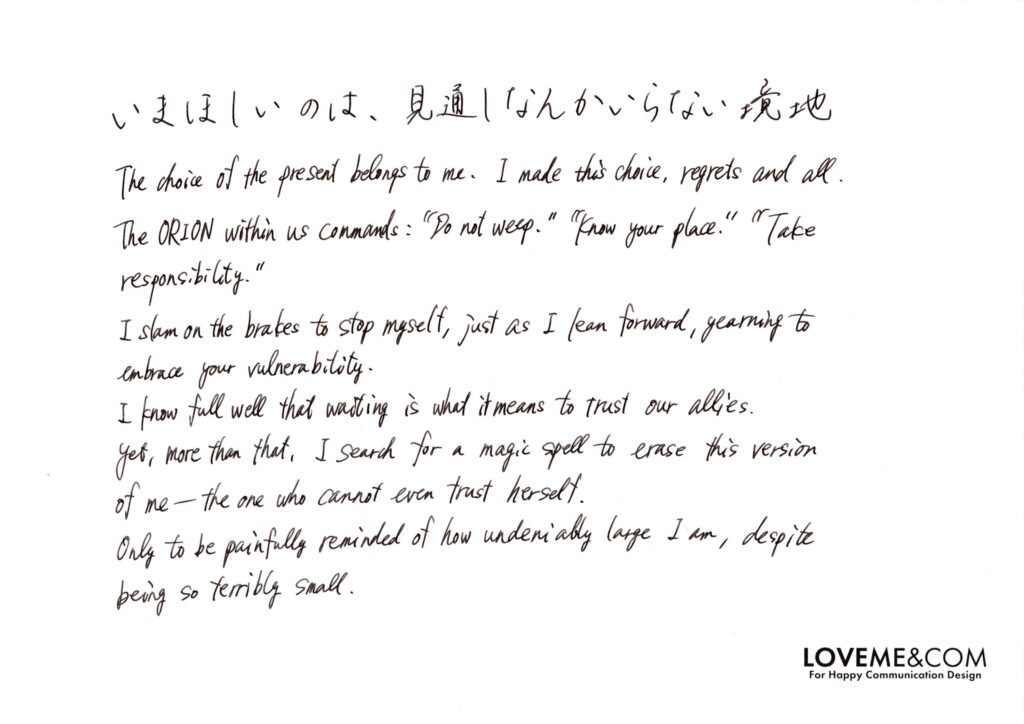 いまほしいのは、見通しなんかいらない境地
The choice of the present belongs to me. I made this choice, regrets and all.
The ORION within us commands: "Do not weep." "Know your place." "Take
responsibility."
I slam on the brakes to stop myself, just as I lean forward, yearning to
embrace your vulnerability.
I know full well that waiting is what it means to trust our allies.
Yet, more than that, I search for a magic spell to erase this version
of me — the one who cannot even trust herself.
Only to be painfully reminded of how undeniably large I am, despite
being so terribly small.
LOVEME&COM
For Happy Communication Design